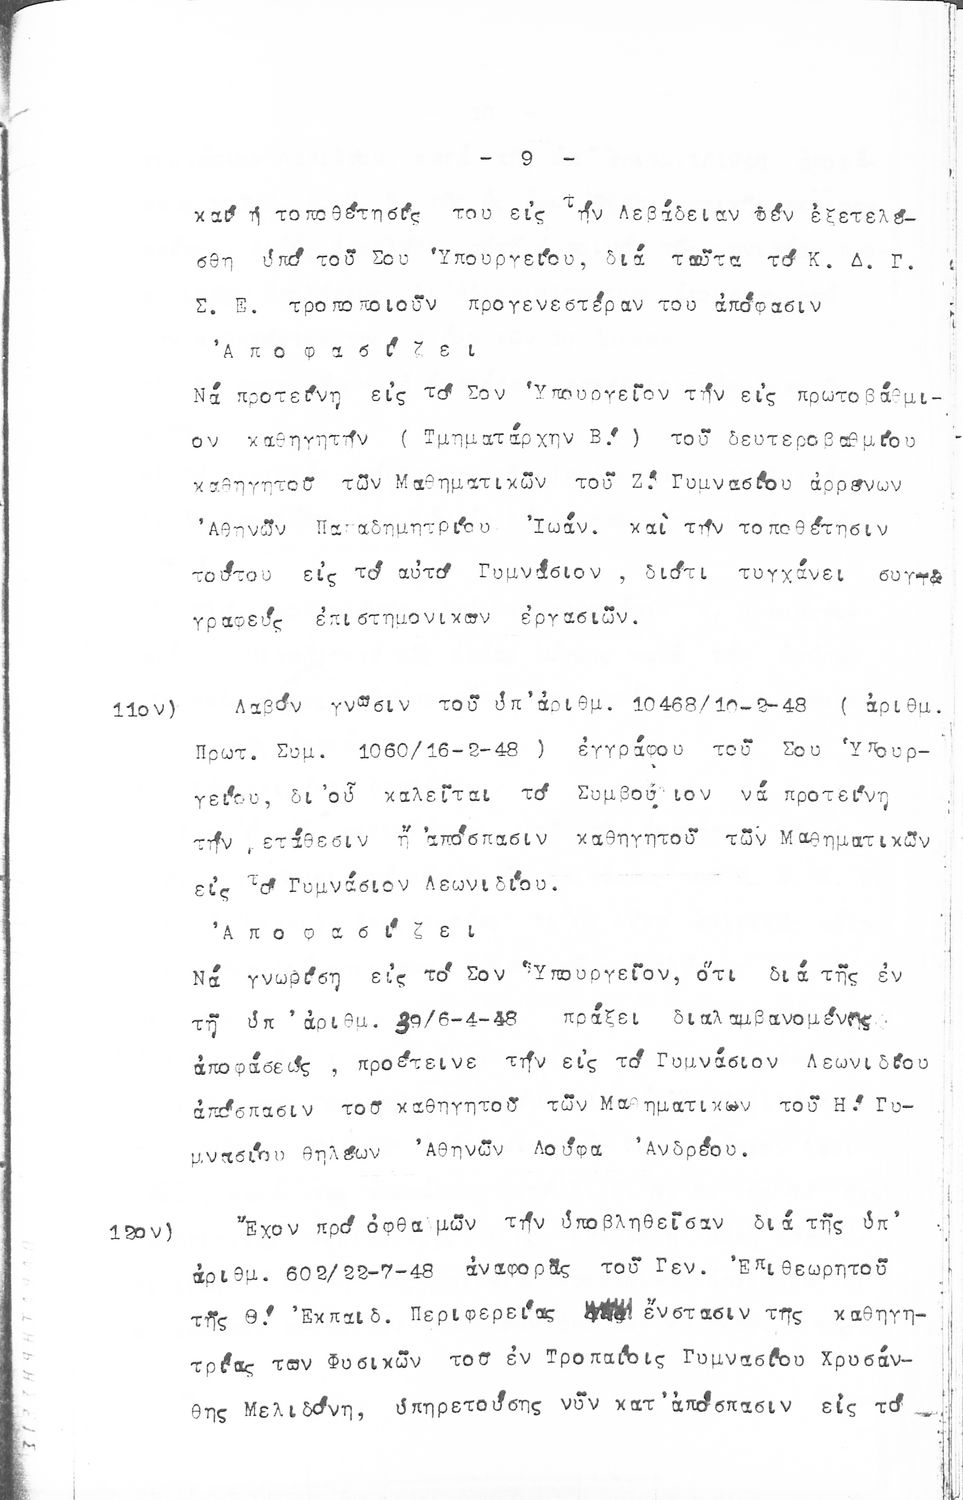 - 9 -
καί ἡ τοποθέτησίς του εἰς τήν Λεβάδειαν δέν ἐξετελέ-
σθη ὑπό τοῦ Σου Ὑπουργείου, διά ταῦτα τό Κ. Δ. Γ.
Σ. Ε. τροποποιοῦν προγενεστέραν του ἀπόφασιν
Ἀ π ο φ α σ ί ζ ε ι
Νά προτείνη εἰς τό Σον Ὑπουργεῖον τήν εἰς πρωτοβάθμι-
ον καθηγητήν ( Τμηματάρχην Β! ) τοῦ δευτεροβαθμίου
καθηγητοῦ τῶν Μαθηματικῶν τοῦ Ζ! Γυμνασίου ἀρρένων
Ἀθηνῶν Παπαδημητρίου Ἰωάν. καὶ τήν τοποθέτησιν
τούτου εἰς τό αὐτό Γυμνάσιον , διότι τυγχάνει συγ
γραφεύς ἐπιστημονικων ἐργασιῶν.
11ον) Λαβόν γνῶσιν τοῦ ὑπ' ἀριθμ. 10468/10-2-48 ( ἀριθμ.
Πρωτ. Συμ. 1060/16-2-48 ) ἐγγράφου τοῦ Σου Ὑπουρ-
γείου, δι' οὗ καλεῖται τό Συμβούλιον νά προτείνη
τήν μετάθεσιν ἤ ἀπόσπασιν καθηγητοῦ τῶν Μαθηματικῶν
εἰς τό Γυμνάσιον Λεωνιδίου.
Ἀ π ο φ α σ ί ζ ε ι
Νά γνωρίση εἰς τό Σον Ὑπουργεῖον, ὅτι διά τῆς ἐν
τῇ ὑπ' ἀριθμ. 39/6-4-48 πράξει διαλαμβανομένης
ἀποφάσεως , προέτεινε τήν εἰς τό Γυμνάσιον Λεωνιδίου
ἀπόσπασιν τοῦ καθηγητοῦ τῶν Μαθηματικων τοῦ Η! Γυ-
μνασίου θηλέων Ἀθηνῶν Λούφα Ἀνδρέου.
12ον) Ἔχον πρό ὀφθαλμῶν τήν ὑποβληθεῖσαν διά τῆς ὑπ'
ἀριθμ. 602/22-7-48 ἀναφορᾶς τοῦ Γεν. Ἐπιθεωρητοῦ
τῆς Θ! Ἐκπαιδ. Περιφερείας ἔνστασιν τῆς καθηγη-
τρίας των Φυσικῶν τοῦ ἐν Τροπαίοις Γυμνασίου Χρυσάν-
θης Μελιδόνη, ὑπηρετούσης νῦν κατ' ἀπόσπασιν εἰς τό